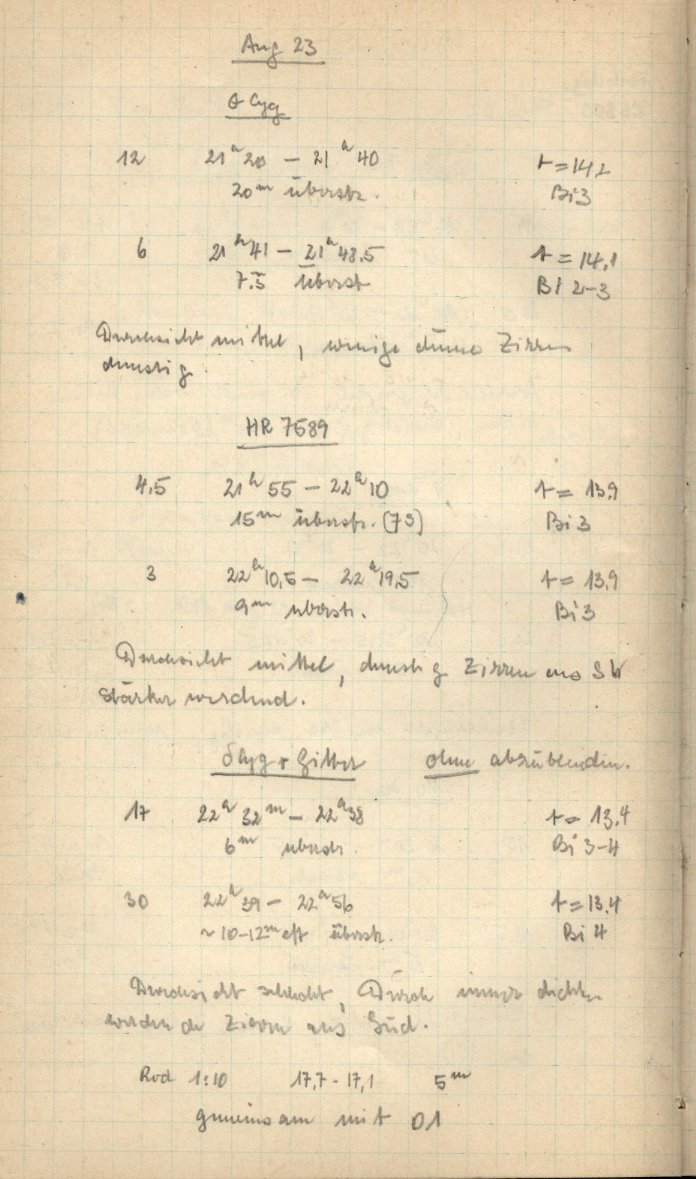 Aug 23
θ Cyg
12 21ʰ20 – 21ʰ40 t = 14,2
20ᵐ überstr. Bi 3
6 21ʰ41 – 21ʰ48.5 t = 14,1
7.5 überst Bi 2-3
Durchsicht mittel, wenige dünne Zirren
dunstig.
HR 7589
4,5 21ʰ55 – 22ʰ10 t = 13,9
15ᵐ überstr. (7S) Bi 3
3 22ʰ10,5 – 22ʰ19,5 t = 13,9
9ᵐ überstr. Bi 3
Durchsicht mittel, dunstig Zirren aus SW
stärker werdend.
δ Cyg + Gitter ohne abzublenden.
17 22ʰ32ᵐ – 22ʰ38 t = 13.4
6ᵐ überstr. Bi 3-4
30 22ʰ39 – 22ʰ56 t = 13.4
~ 10-12ᵐ eff überstr. Bi 4
Durchsicht schlecht, Durch immer dichter
werdende Zirren aus Süd.
Rod 1:10 17,7 - 17,1 5ᵐ
gemeinsam mit 01